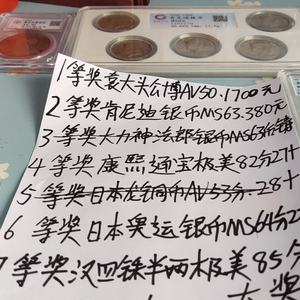 1等奖袁大头公博AV50.1700元
2等奖肯尼迪银币MS63.380元
3等奖大力神法郎银币MS63
4等奖康熙通宝极美82分27+
5等奖日本龙铜币AV53分.28+
6等奖日本奥运银币MS64分2
7等奖汉四铢半两极美85分
大奖